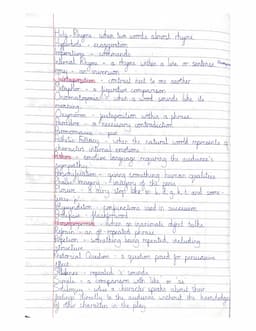 Half-Rhyme - when two words almost rhyme
Hyperbole - exaggeration
Imperatives - commands
Internal Rhyme - a rhyme within a line or sentence
Irony - an inversion
Juxtaposition - contrast next to one another
Metaphor - a figurative comparison
Onomatopoeia - when a word sounds like its
meaning
Oxymoron - juxtaposition within a phrase
Paradox - a necessary contradiction
Paronomasia - pun
Pathetic Fallacy - when the natural world represents a
character's internal emotions
Pathos - emotive language requiring the audience's
sympathy
Personification - giving something human qualities
Plosive - a very stop like in b, d, g, k, t and some
Polysyndeton - conjunctions used in succession
Prolepsis - flashforward
- when an inanimate object talks
Refrain - an repeated phrase
Repetition - something being repeated, including
structure
Rhetorical Question - a question posed for persuasive
effect
Sibilance - repeated 's' sounds
Simile - a comparison with like or as
Soliloquy - when a character speaks about their
feelings directly to the audience without the knowledge
of other characters in the play